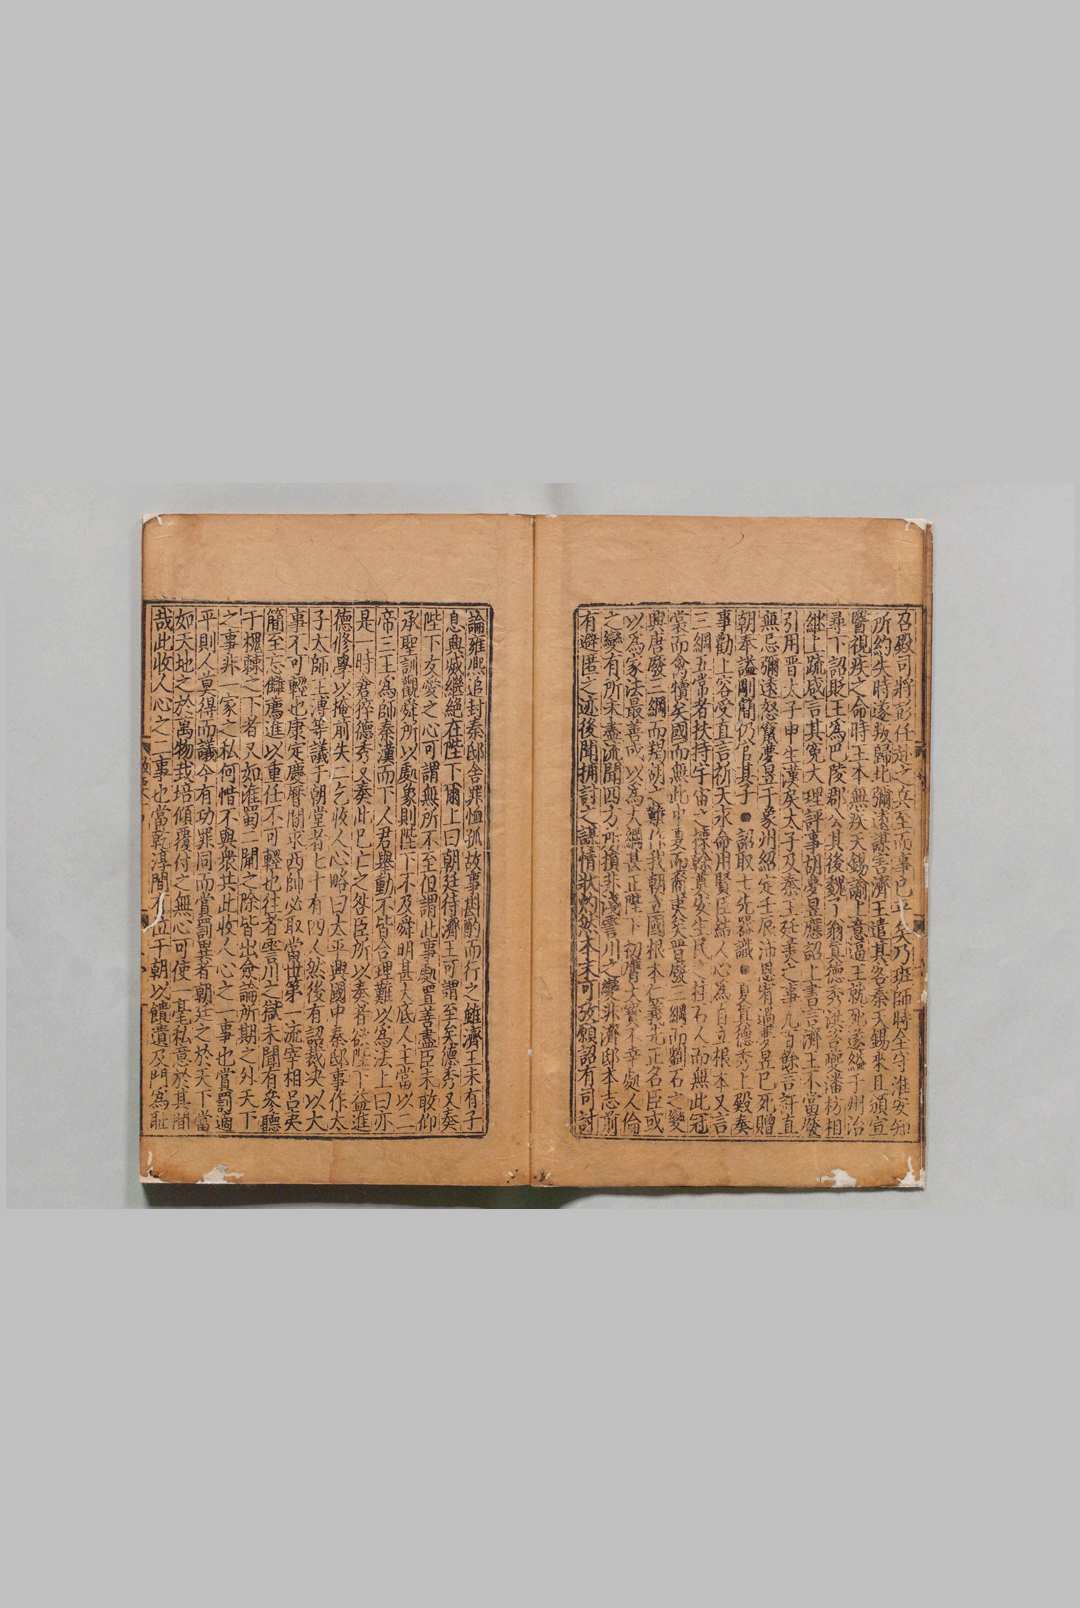 召殿司將彭任討之兵至而事已平矣乃班師時全守淮安知
所約失時遂叛歸北彌遠謀害濟王遣其客秦天錫來且頒宣
醫視疾之命時王本無疾天錫諭上意逼王就死遂縊于州治
尋下詔貶王爲巴陵郡公其後魏了翁眞德秀洪咨夔潘枋相
繼上疏咸言其冤大理評事胡夢昱應詔上書言濟王不當廢
引用晉太子申生漢戾太子及秦王廷美之事凡百餘言訐直
無忌彌遠怒竄夢昱于象州紹定壬辰沛恩宥過夢昱已死贈
朝奉謚剛簡仍官其子 詔取七先器識 夏眞德秀上殿奏
事勸上容受直言祈天永命用賢臣結人心為自立根本又言
三綱五常者扶持宇宙之棟幹奠安生民之柱石人而無此冠
裳而禽犢矣國而無此中夏而裔夷矣晉廢三綱而劉石之變
興唐廢三綱而羯胡之難作我朝立國根本仁義先正名臣或
以為家法最善或以為大綱甚正陛下初膺大寶不幸處人倫
之變有所未盡流聞四方所損非淺霅川之變非濟邸本志前
有避匿之迹後聞捕討之謀情狀灼然本末可攷願詔有司討
論雍熙追封秦邸舍罪恤孤故事斟酌而行之雖濟王未有子
息興滅繼絕在陛下爾上曰朝廷待濟王可謂至矣德秀又奏
陛下友愛之心可謂無所不至但謂此事處置善盡臣未敢仰
承聖訓觀舜所以處象則陛下不及舜明甚大底人主當以二
帝三王為師秦漢而下人君舉動不皆合理難以為法上曰亦
是一時倉猝德秀又奏此已亡之咎臣所以奏者欲陛下益進
德修學以掩前失二乞收人心略曰太平興國中秦邸事作太
子太師王溥等議于朝堂者七十有四人然後有詔裁决以大
事不可輕也康定慶曆間求西帥必取當世第一流宰相呂夷
簡至忘讎薦進以重任不可輕也往者霅川之獄未聞有參聽
于槐棘之下者又如淮蜀二閫之除皆出僉論所期之外天下
之事非一家之私何惜不與衆共此收人心之一事也賞罰適
平則人莫得而議今有功罪同而賞罰異者朝廷之於天下當
如天地之於萬物栽培傾覆付之無心可使一毫私意於其間
哉此收人心之二事也當乾淳間有位于朝以饋遺及門為恥